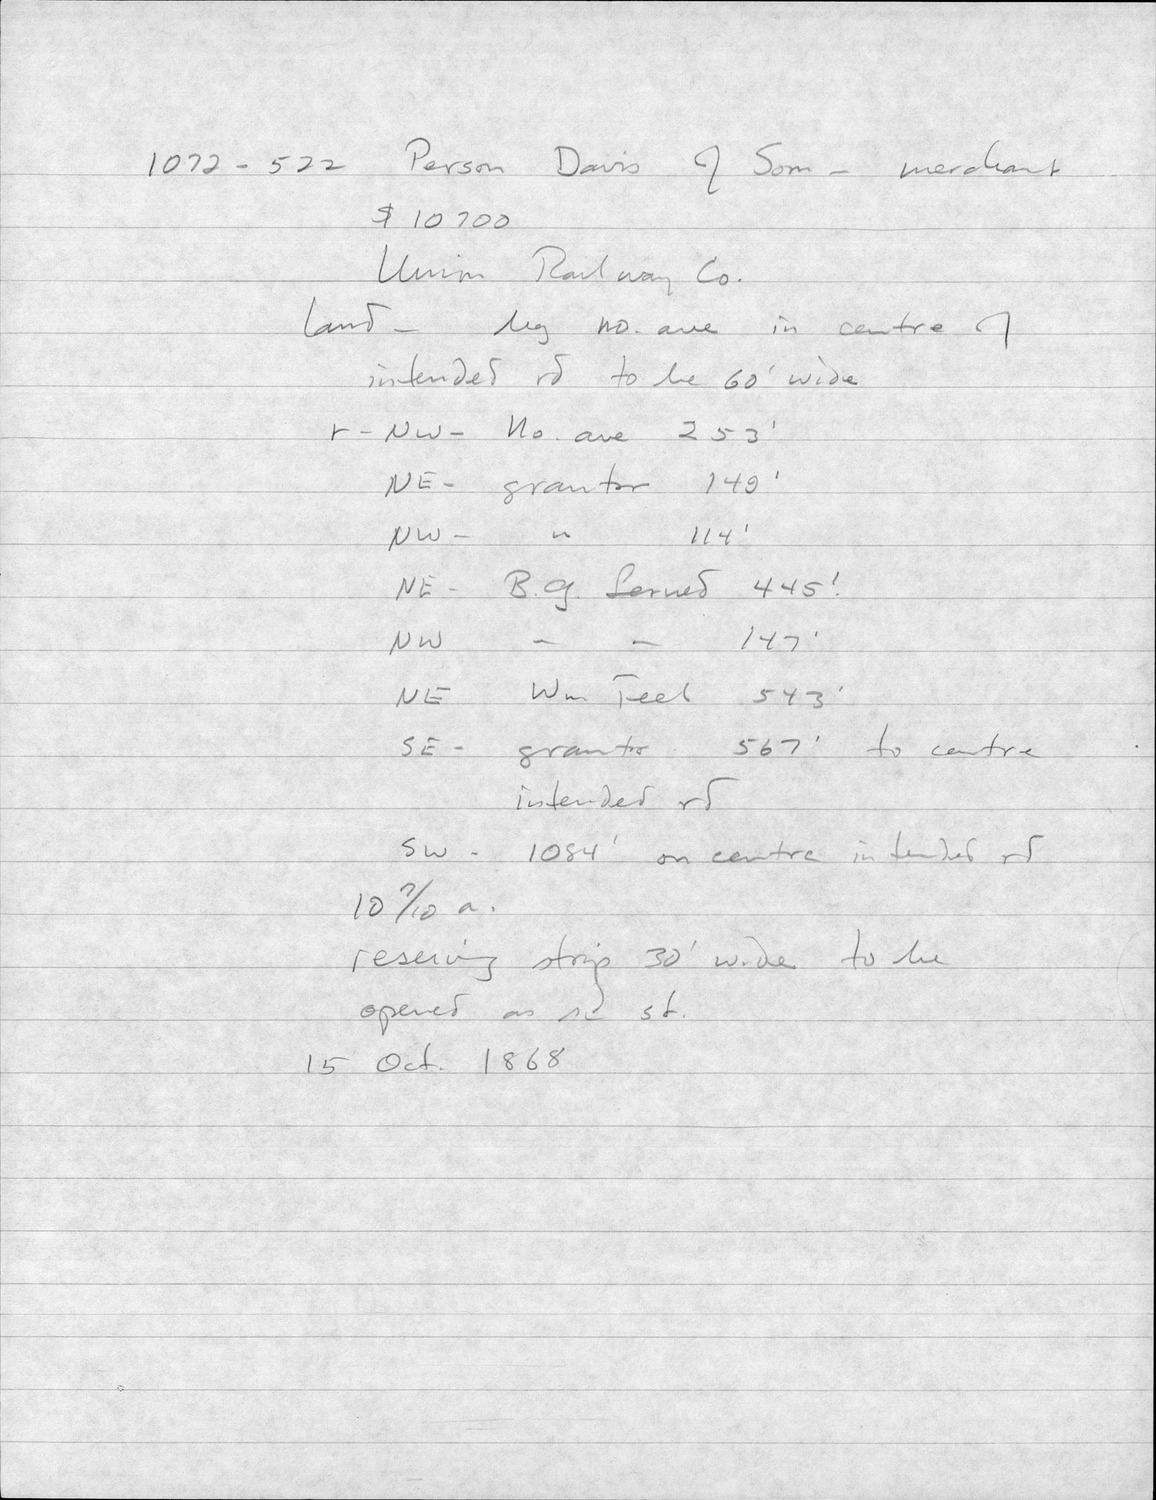 1072-522 Person Davis of Som - merchant
$10700
Union Railway Co.
land - beg no. ave in centre of
intended rd to be 60' wide
r - NW - No. ave 253'
NE - grantor 149'
NW - " 114'
NE - B.G. Gerned 445'
NW - - 147'
NE Wm Teel 543'
SE - grantor 567' to centre
intended rd
SW - 1084' on centre intended rd
10 7/10 a.
reserving strip 30' wide to be
opened as sd st.
15 Oct. 1868